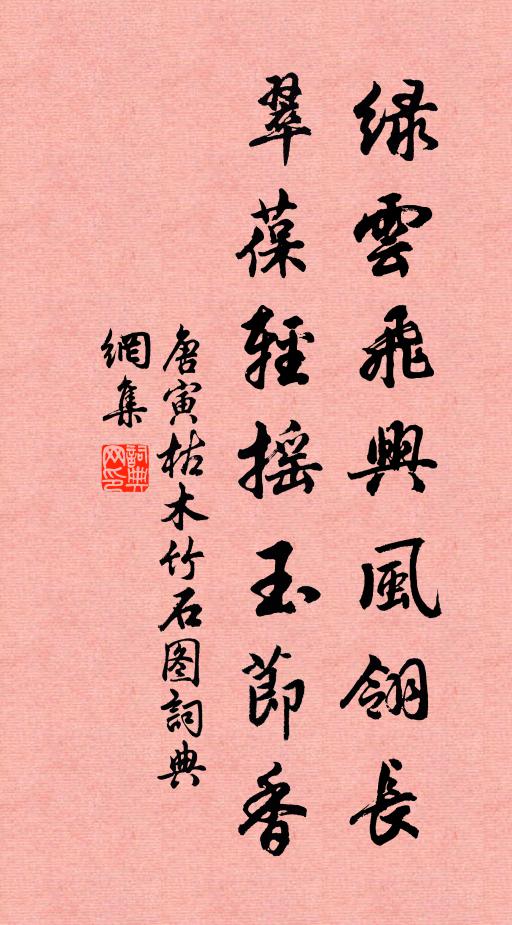 绿雲飛興風翎長
翠葆輕摇玉節香
唐寅枯木竹石图詞典
網集
詞典網印